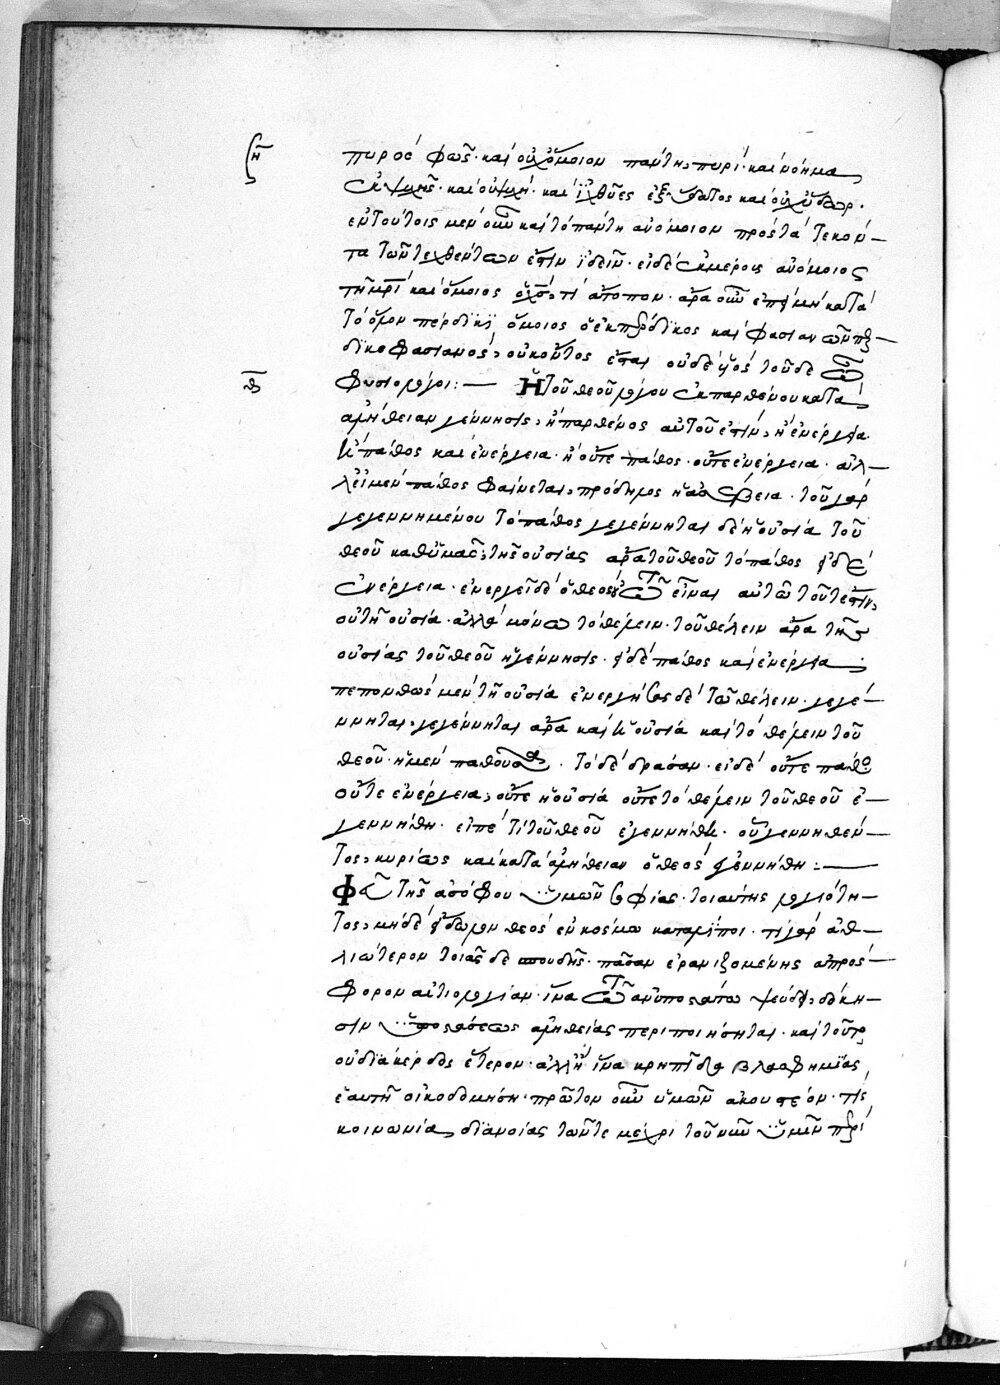 η
πυρὸς φῶς· καὶ οὐχ ὅμοιον πάντη πυρί· καὶ νόημα
ἐκ ψυχῆς· καὶ οὐ ψυχή· καὶ ἰχθῦες ἐξ ὕδατος καὶ οὐχ ὕδωρ·
ἐν τούτοις μὲν οὖν καὶ τὸ πάντη ἀνόμοιον πρὸς τὰ τεκόν–
τα τῶν τεχθέντων ἔστιν ἰδεῖν· εἰ δὲ ἐκ μέρους ἀνόμοιος
τῆ μρὶ καὶ ὅμοιος τί ἄτοπον· ἆρα οὖν
τὸ ὅμοιος ὁ ἐκ πέρδικος καὶ φασιανῶν περ–
δικοφασιανός, οὐκ οὗτος ἔσται οὐδὲ υἱὸς τοῦδε
θ
φυσιολόγοι:— Ἡ τοῦ θεοῦ λόγου ἐκ παρθένου κατὰ
ἀλήθειαν γέννησις, ἢ πάθος αὐτοῦ ἐστιν, ἢ ἐνέργεια
ἢ πάθος καὶ ἐνέργεια· ἢ οὔτε πάθος· οὔτε ἐνέργεια· ἀλ–
λ' εἰ μὲν πάθος φαίνεται, πρόδηλος ἡ ἀσέβεια· τοῦ γὰρ
γεγεννημένου τὸ πάθος γεγέννηται δὲ ἡ οὐσία τοῦ
θεοῦ καθ' ὑμᾶς, τῆς οὐσίας ἄρα τοῦ θεοῦ τὸ πάθος· εἰ δὲ
ἐνέργεια· ἐνεργεῖ δὲ ὁ θεὸς εἶναι αὐτῶ τοῦτ' ἔστιν,
οὐ τῆ οὐσία· ἀλλὰ μόνω τὸ θέλειν· τοῦ θέλειν ἄρα τῆς
οὐσίας τοῦ θεοῦ ἡ γέννησις· εἰ δὲ πάθος καὶ ἐνέργεια,
πεπονθὼς μὲν τῆ οὐσία ἐνεργήσας δὲ τῶ θέλειν· γεγέ–
ννηται, γεγέννηται ἄρα καὶ ἡ οὐσία καὶ τὸ θέλειν τοῦ
θεοῦ· ἡ μὲν παθοῦσα· τὸ δὲ δρᾶσαν· εἰ δὲ οὔτε πάθος
οὔτε ἐνέργεια, οὔτε ἡ οὐσία οὔτε τὸ θέλειν τοῦ θεοῦ ἐ–
γεννήθη· εἶπε τί τοῦ θεοῦ ἐγεννήθη· οὗ γεννηθέν–
τος, κυρίως καὶ κατὰ ἀλήθειαν ὁ θεὸς γεννήθη:—
Φεῦ τῆς ἀσόφου ὑμῶν σοφίας· τοιαύτης λογιότη–
τος, μηδὲ ἔδωλον θεὸς ἐν κόσμω καταλίποι· τί γὰρ ἀθ–
λιώτερον τοιᾶσδε σπουδῆς· πᾶσαν ἐρανιζομένης ἀπρόσ–
φορον αἰτιολογίαν· ἵνα τῶ ἀνυποστάτω ψεύδει, δόκη–
σιν ὑποστάσεως ἀληθείας περιποιήσηται· καὶ τοῦτο
οὐ διὰ κέρδος ἕτερον· ἀλλ' ἢ ἵνα κρηπίδα βλασφημίας
ἑαυτῆ οἰκοδομήση· πρῶτον οὖν ὑμῶν ἀκουστέον· τίς
κοινωνία διανοίας τῶν τε μέχρι τοῦ νῦν ὑμῖν περὶ